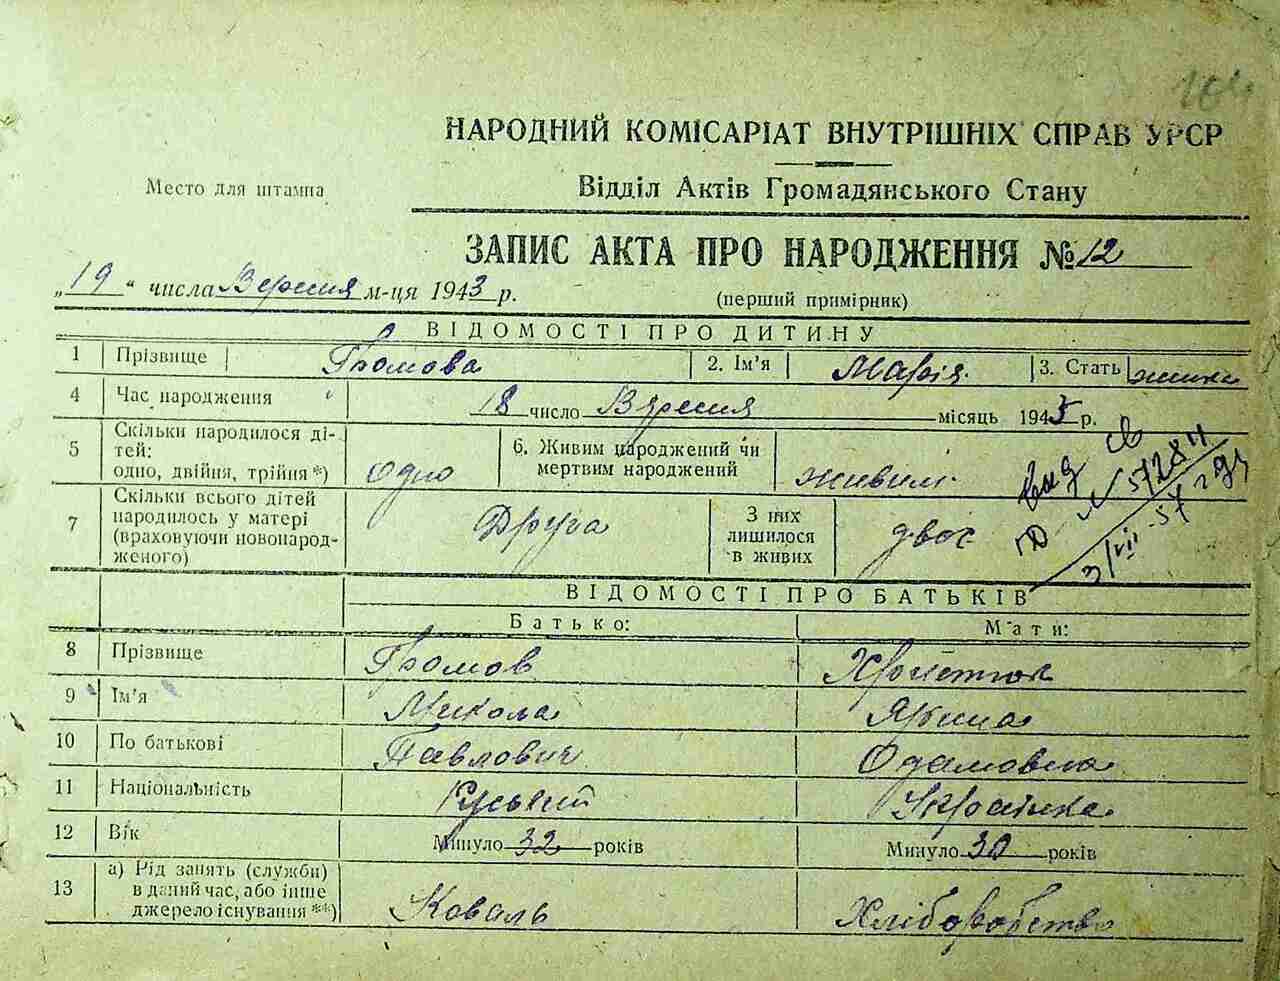 164
НАРОДНИЙ КОМІСАРІАТ ВНУТРІШНІХ СПРАВ УРСР
Место для штампа
Відділ Актів Громадянського Стану
ЗАПИС АКТА ПРО НАРОДЖЕННЯ № 12
„19“ числа Вересня м-ця 1943 р.
(перший примірник)
ВІДОМОСТІ ПРО ДИТИНУ
1 Прізвище Громова 2. Ім'я Марія 3. Стать
4 Час народження 18 число Вересня місяць 1943 р.
5 Скільки народилося ді-
тей:
одно, двійня, трійня*) одно 6. Живим народжений чи
мертвим народжений живим
вид св
ГО № 572811
3/VII-57
7 Скільки всього дітей
народилось у матері
(враховуючи новонарод-
женого) Друга З них
лишилося
в живих двоє
ВІДОМОСТІ ПРО БАТЬКІВ
Батько: Мати:
8 Прізвище Громов Христюк
9 Ім'я Микола Ярина
10 По батькові Павлович Одамовна
11 Національність Руський Українка
12 Вік Минуло 32 років Минуло 30 років
13 а) Рід занять (служби)
в даний час, або інше
джерело існування **) Коваль Хліборобство